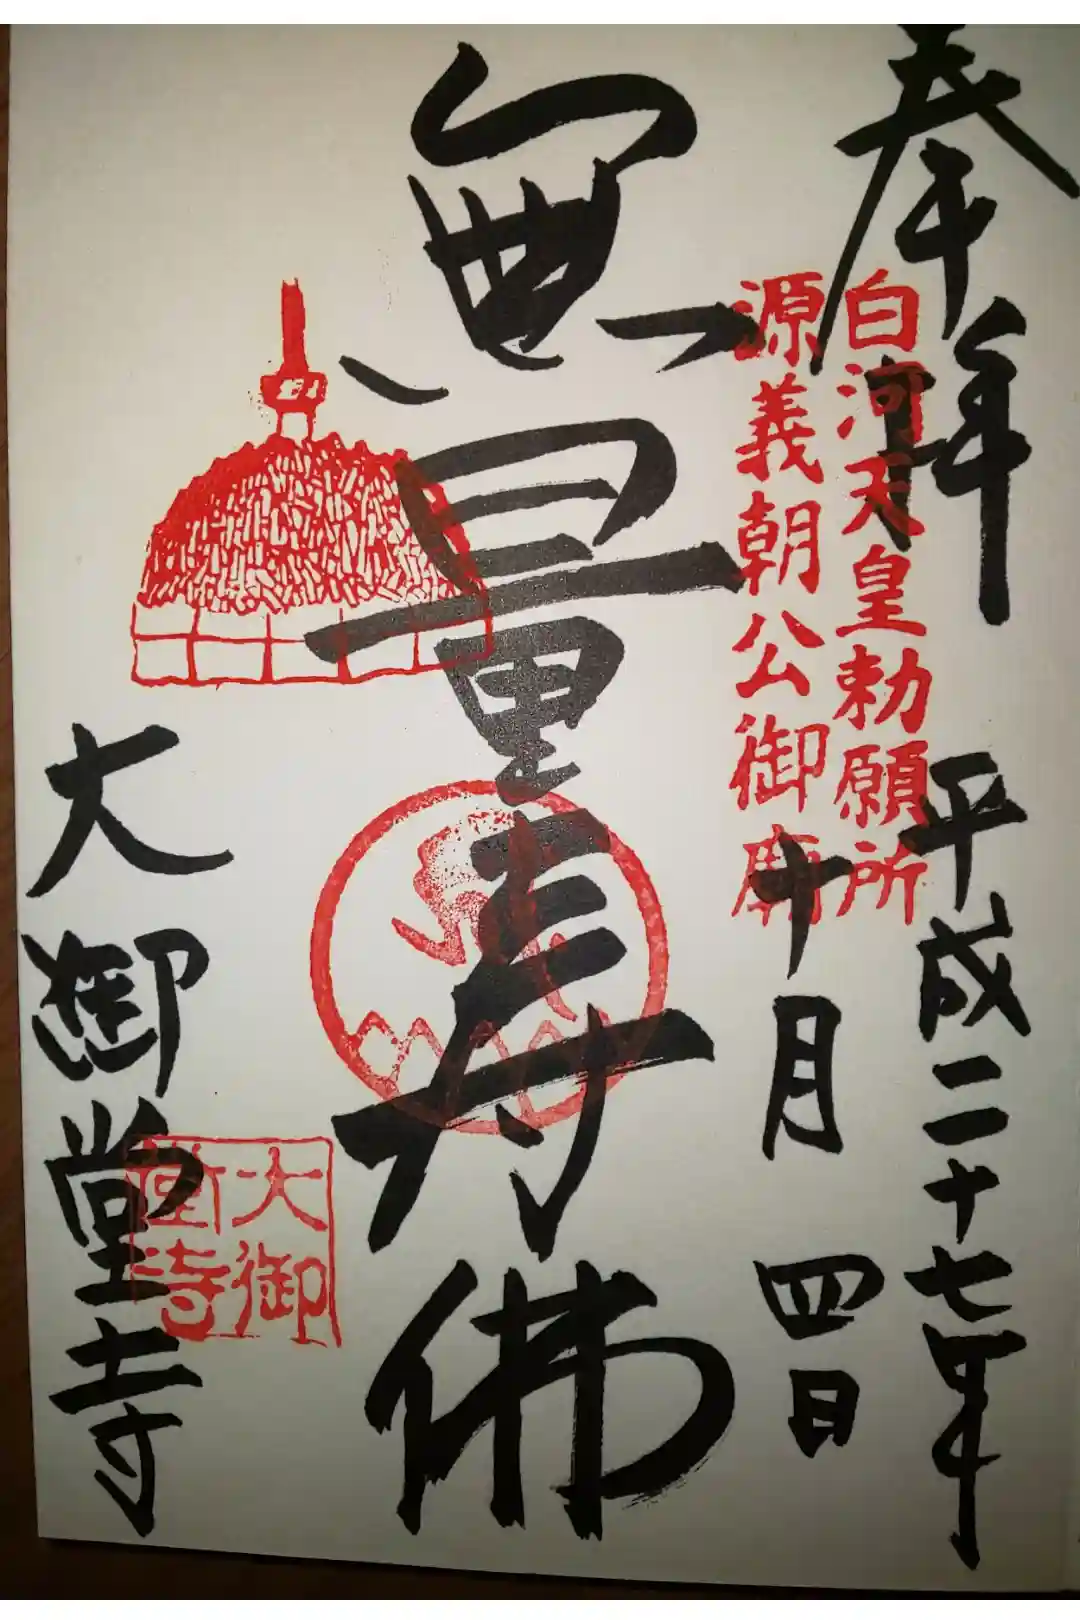 奉拝
白河天皇勅願所
源義朝公御廟
平成二十七年
十月四日
無量寿佛
大御堂寺
大御堂寺